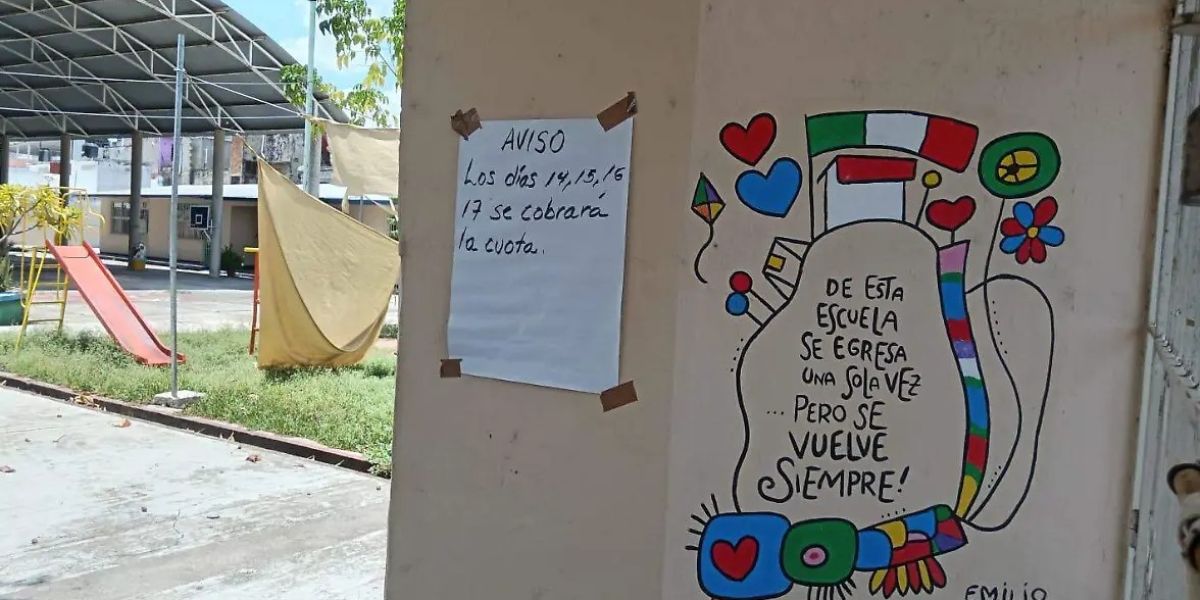 AVISO
Los días 14,15,16
17 se cobrará
la cuota.
DE ESTA
ESCUELA
SE EGRESA
UNA SOLA VEZ
...PERO SE
VUELVE
SIEMPRE!
EMILIO